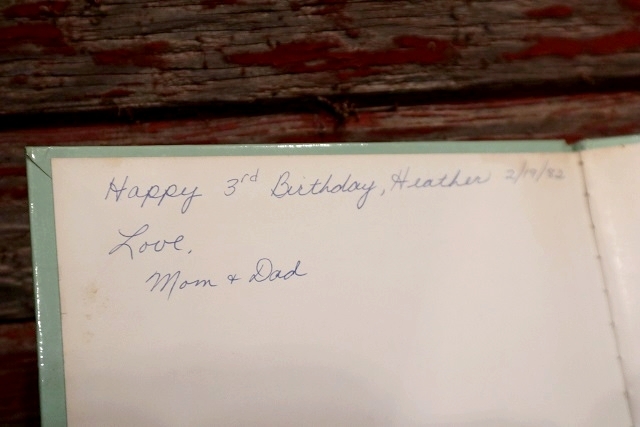 Happy 3rd Birthday, Heather 2/19/82
Love,
Mom & Dad